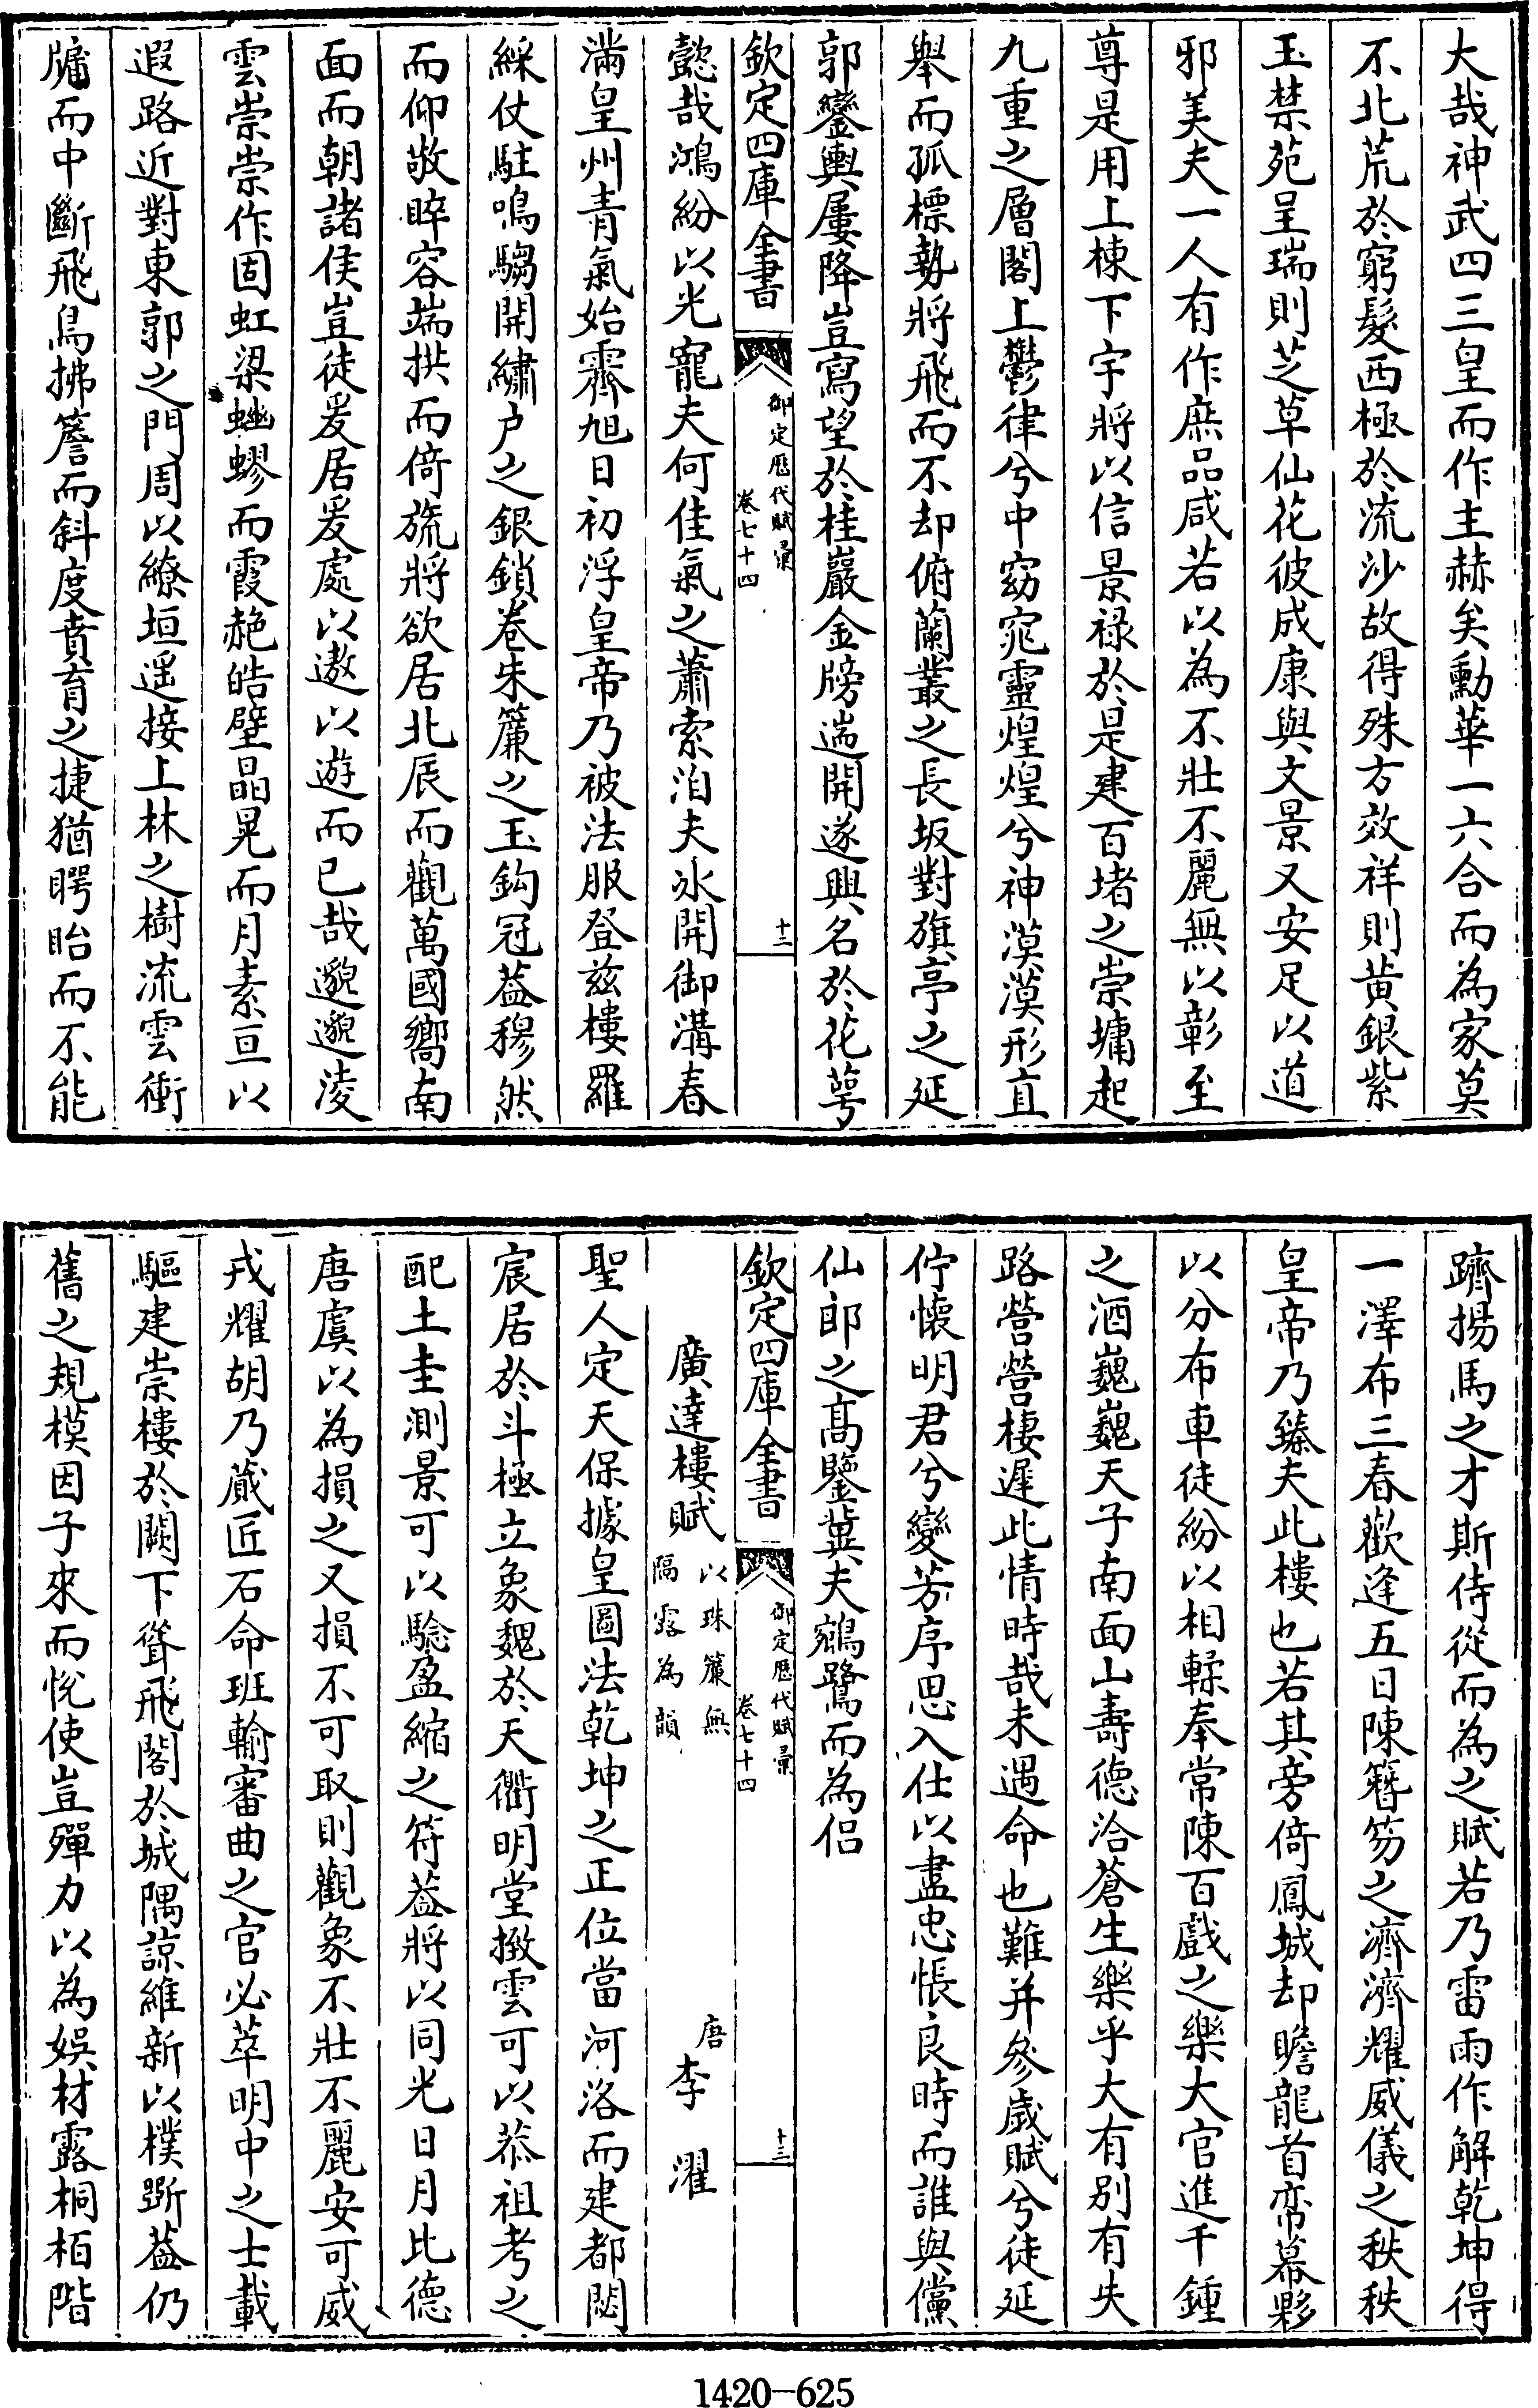 大哉神武四三皇而作主赫矣勳華一六合而為家莫
不北荒於窮髮西極於流沙故得殊方效祥則黄銀紫
玉禁苑呈瑞則芝草仙花彼成康與文景又安足以道
邪美夫一人有作庶品咸若以為不壯不麗無以彰至
尊是用上棟下宇將以信景禄於是建百堵之崇墉起
九重之層閣上鬱律兮中窈窕靈煌煌兮神漠漠形直
舉而孤標勢將飛而不却俯蘭叢之長坂對旗亭之延
郭鑾輿屢降豈寫望於桂巖金牓遄開遂興名於花萼
欽定四庫全書
御定歴代賦彙
卷七十四
十二
懿哉鴻紛以光寵夫何佳氣之蕭索洎夫冰開御溝春
滿皇州青氣始霽旭日初浮皇帝乃被法服登兹樓羅
綵仗駐鳴騶開繡户之銀鎖卷朱簾之玉鈎冠葢穆然
而仰敬睟容端拱而倚旒將欲居北辰而觀萬國嚮南
面而朝諸侯豈徒爰居爰處以遨以遊而已哉邈邈凌
雲崇崇作固虹梁蚴蟉而霞赩皓壁晶晃而月素亘以
遐路近對東郭之門周以繚垣遥接上林之樹流雲衝
牖而中斷飛鳥拂簷而斜度賁育之捷猶睜眙而不能
躋揚馬之才斯侍從而為之賦若乃雷雨作解乾坤得
一澤布三春歡逢五日陳簪笏之濟濟耀威儀之秩秩
皇帝乃臻夫此樓也若其旁倚鳳城却瞻龍首帟幕夥
以分布車徒紛以相輮奉常陳百戲之樂大官進千鍾
之酒巍巍天子南面山壽德洽蒼生樂乎大有别有失
路營營棲遲此情時哉未遇命也難并參歲賦兮徒延
佇懷明君兮變芳序思入仕以盡忠悵良時而誰與儻
仙郎之髙鑒冀夫鵷鷺而為侣
欽定四庫全書
御定歴代賦彙
卷七十四
十三
廣達樓賦 以珠簾無隔露為韻 唐李濯
聖人定天保據皇圖法乾坤之正位當河洛而建都閟
宸居於斗極立象魏於天衢明堂撥雲可以恭祖考之
配土圭測景可以驗盈縮之符葢將以同光日月比德
唐虞以為損之又損不可取則觀象不壯不麗安可威
戎耀胡乃蕆匠石命班輸審曲之官必萃明中之士載
驅建崇樓於闕下聳飛閣於城隅諒維新以樸斲葢仍
舊之規模因子來而悅使豈殫力以為娱材露桐栢階
1420-625